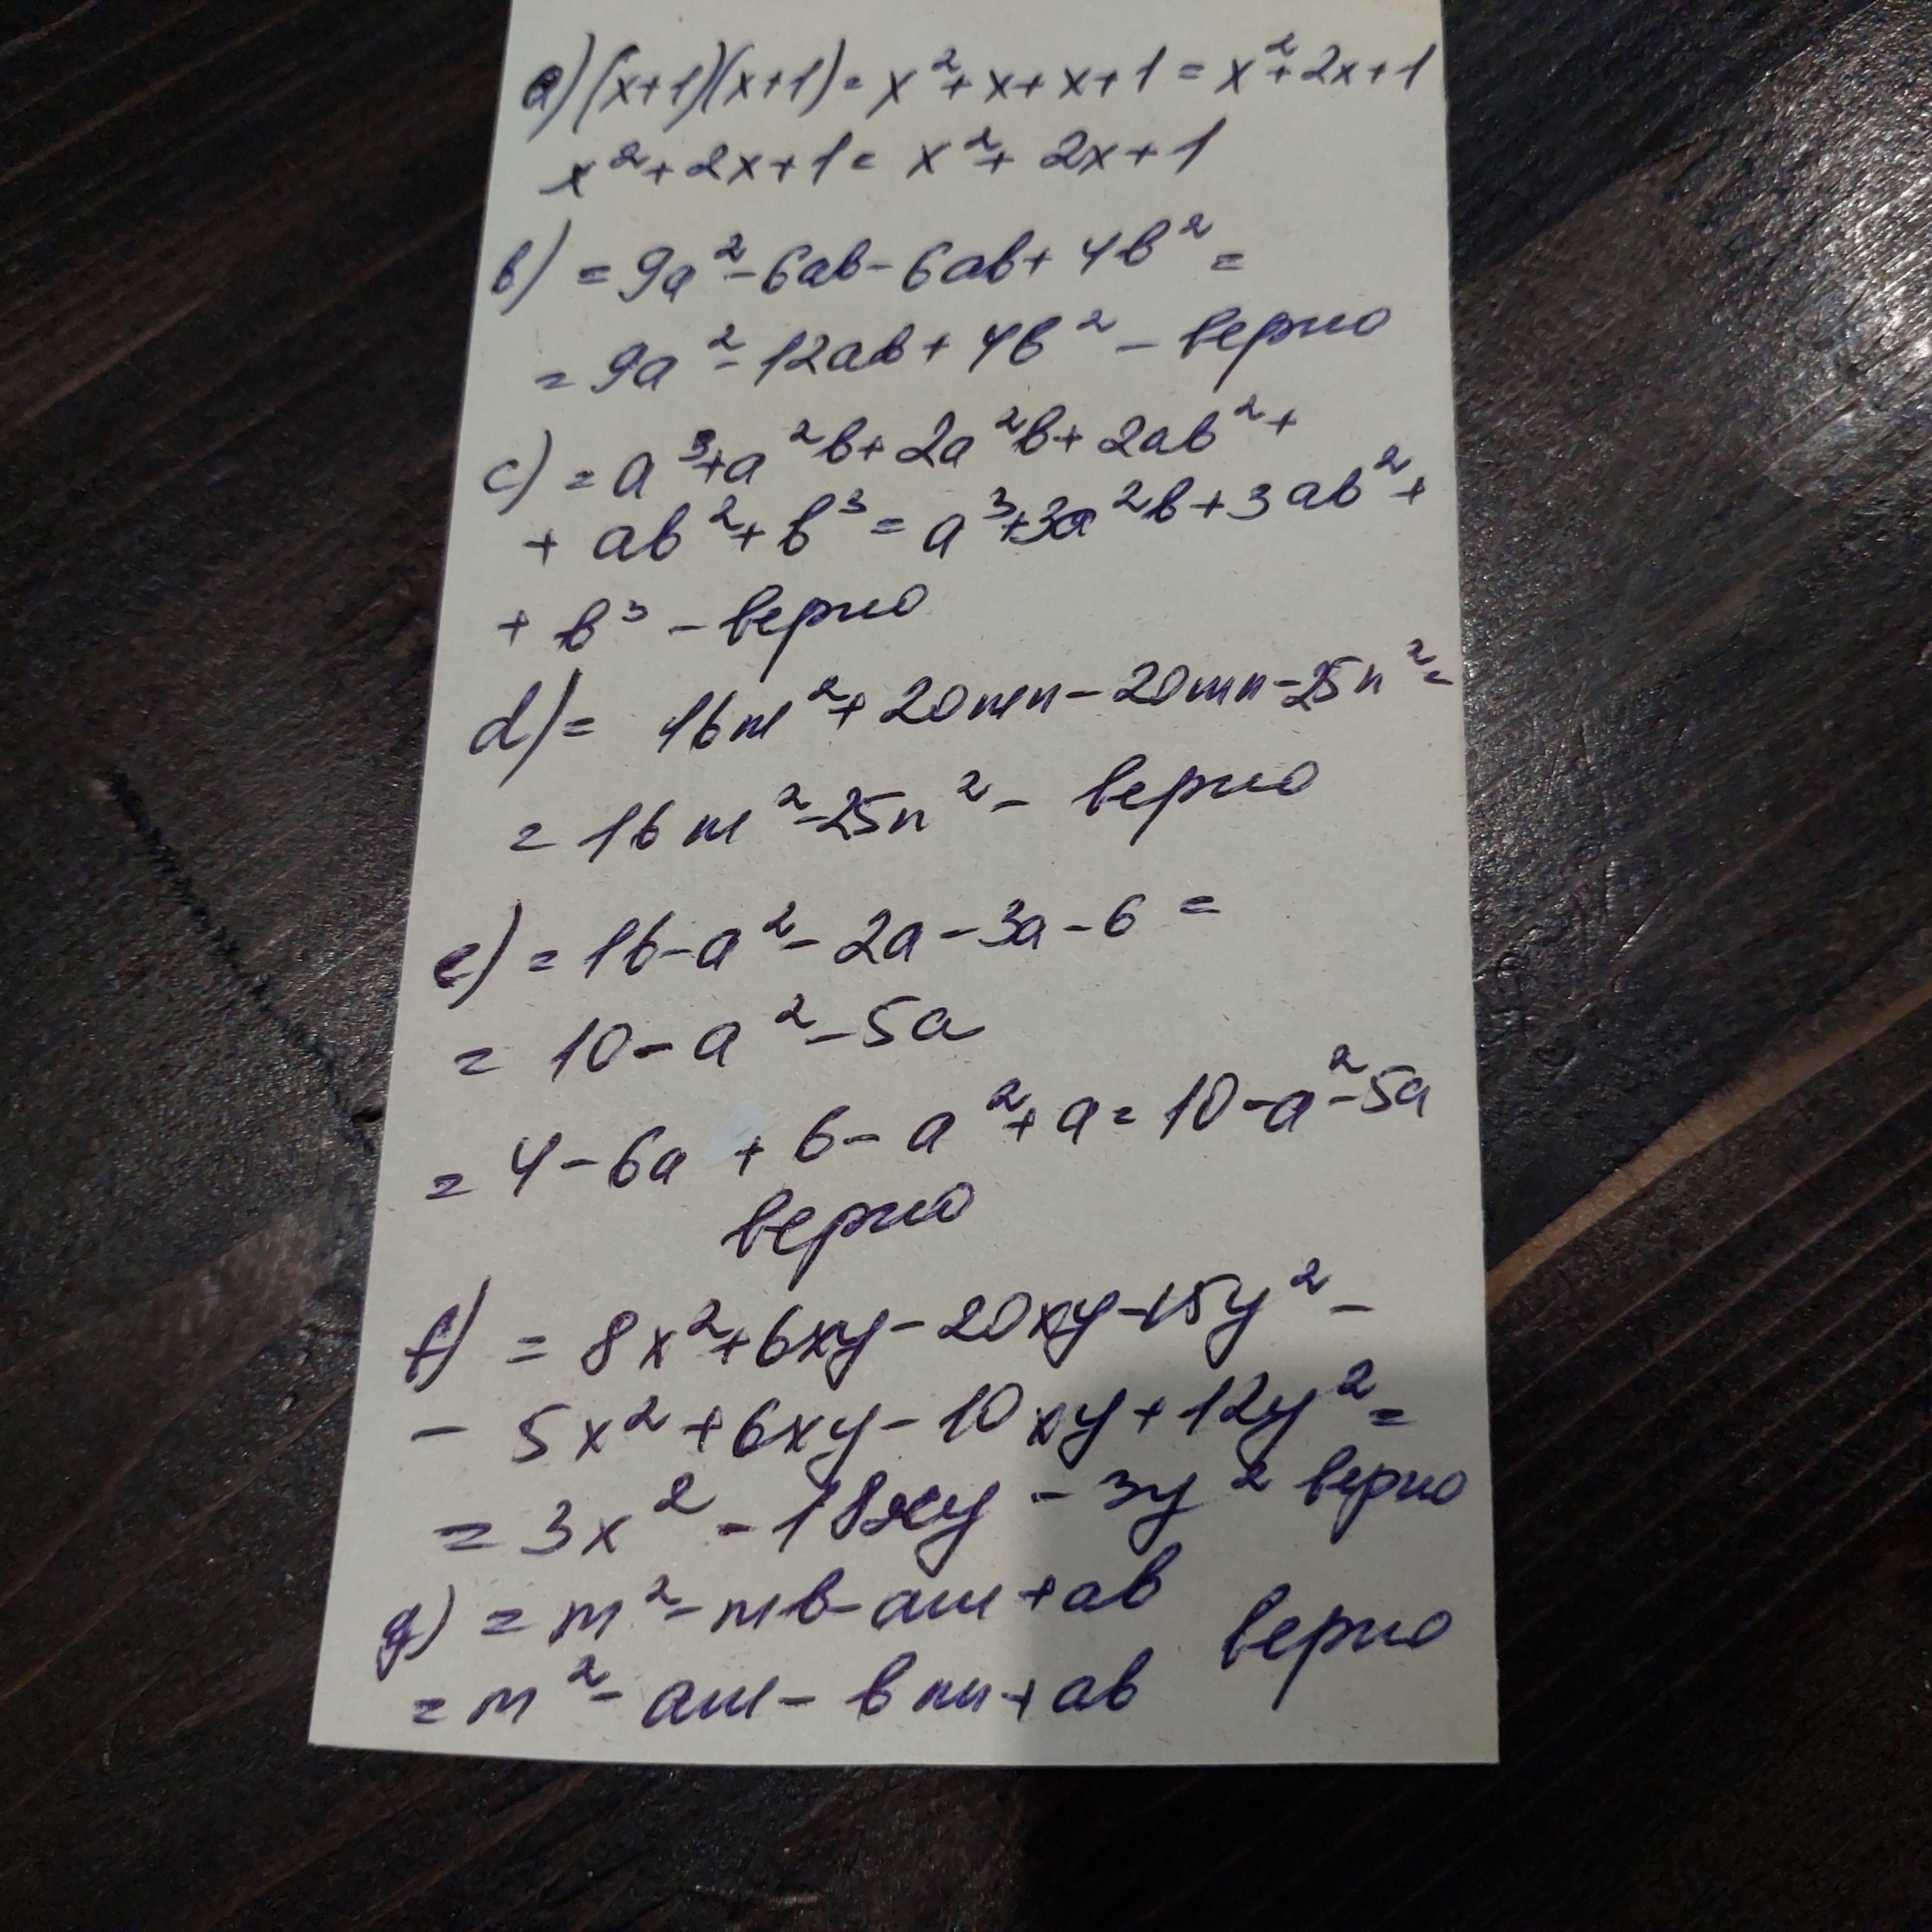 a) (x+1)(x+1) = x²+x+x+1 = x²+2x+1
x²+2x+1 = x²+2x+1
b) = 9a²-6ab-6ab+4b² =
= 9a²-12ab+4b² - верно
c) = a³+a²b+2a²b+2ab²+
+ ab²+b³ = a³+3a²b+3ab²+
+ b³ - верно
d) = 16m²+20mn-20mn-25n²=
= 16m²-25n² - верно
e) = 16-a²-2a-3a-6 =
= 10-a²-5a
= 4-6a+6-a²+a = 10-a²-5a
верно
f) = 8x²+6xy-20xy-15y²-
- 5x²+6xy-10xy+12y²=
= 3x²-18xy-3y² верно
g) = m²-mb-am+ab
= m²-am-bm+ab верно